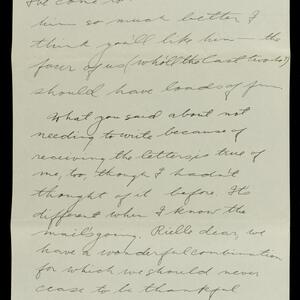 I've come to
him so much better I
think you'll like him — the
four of us (who'll the last two be?)
should have loads of fun
What you said about not
needing to write because of
receiving the letters is true of
me, too, though I hadn't
thought of it before. It's
different when I know the
mail's going. dear, we
have a wonderful combination
for which we should never
cease to be thankful